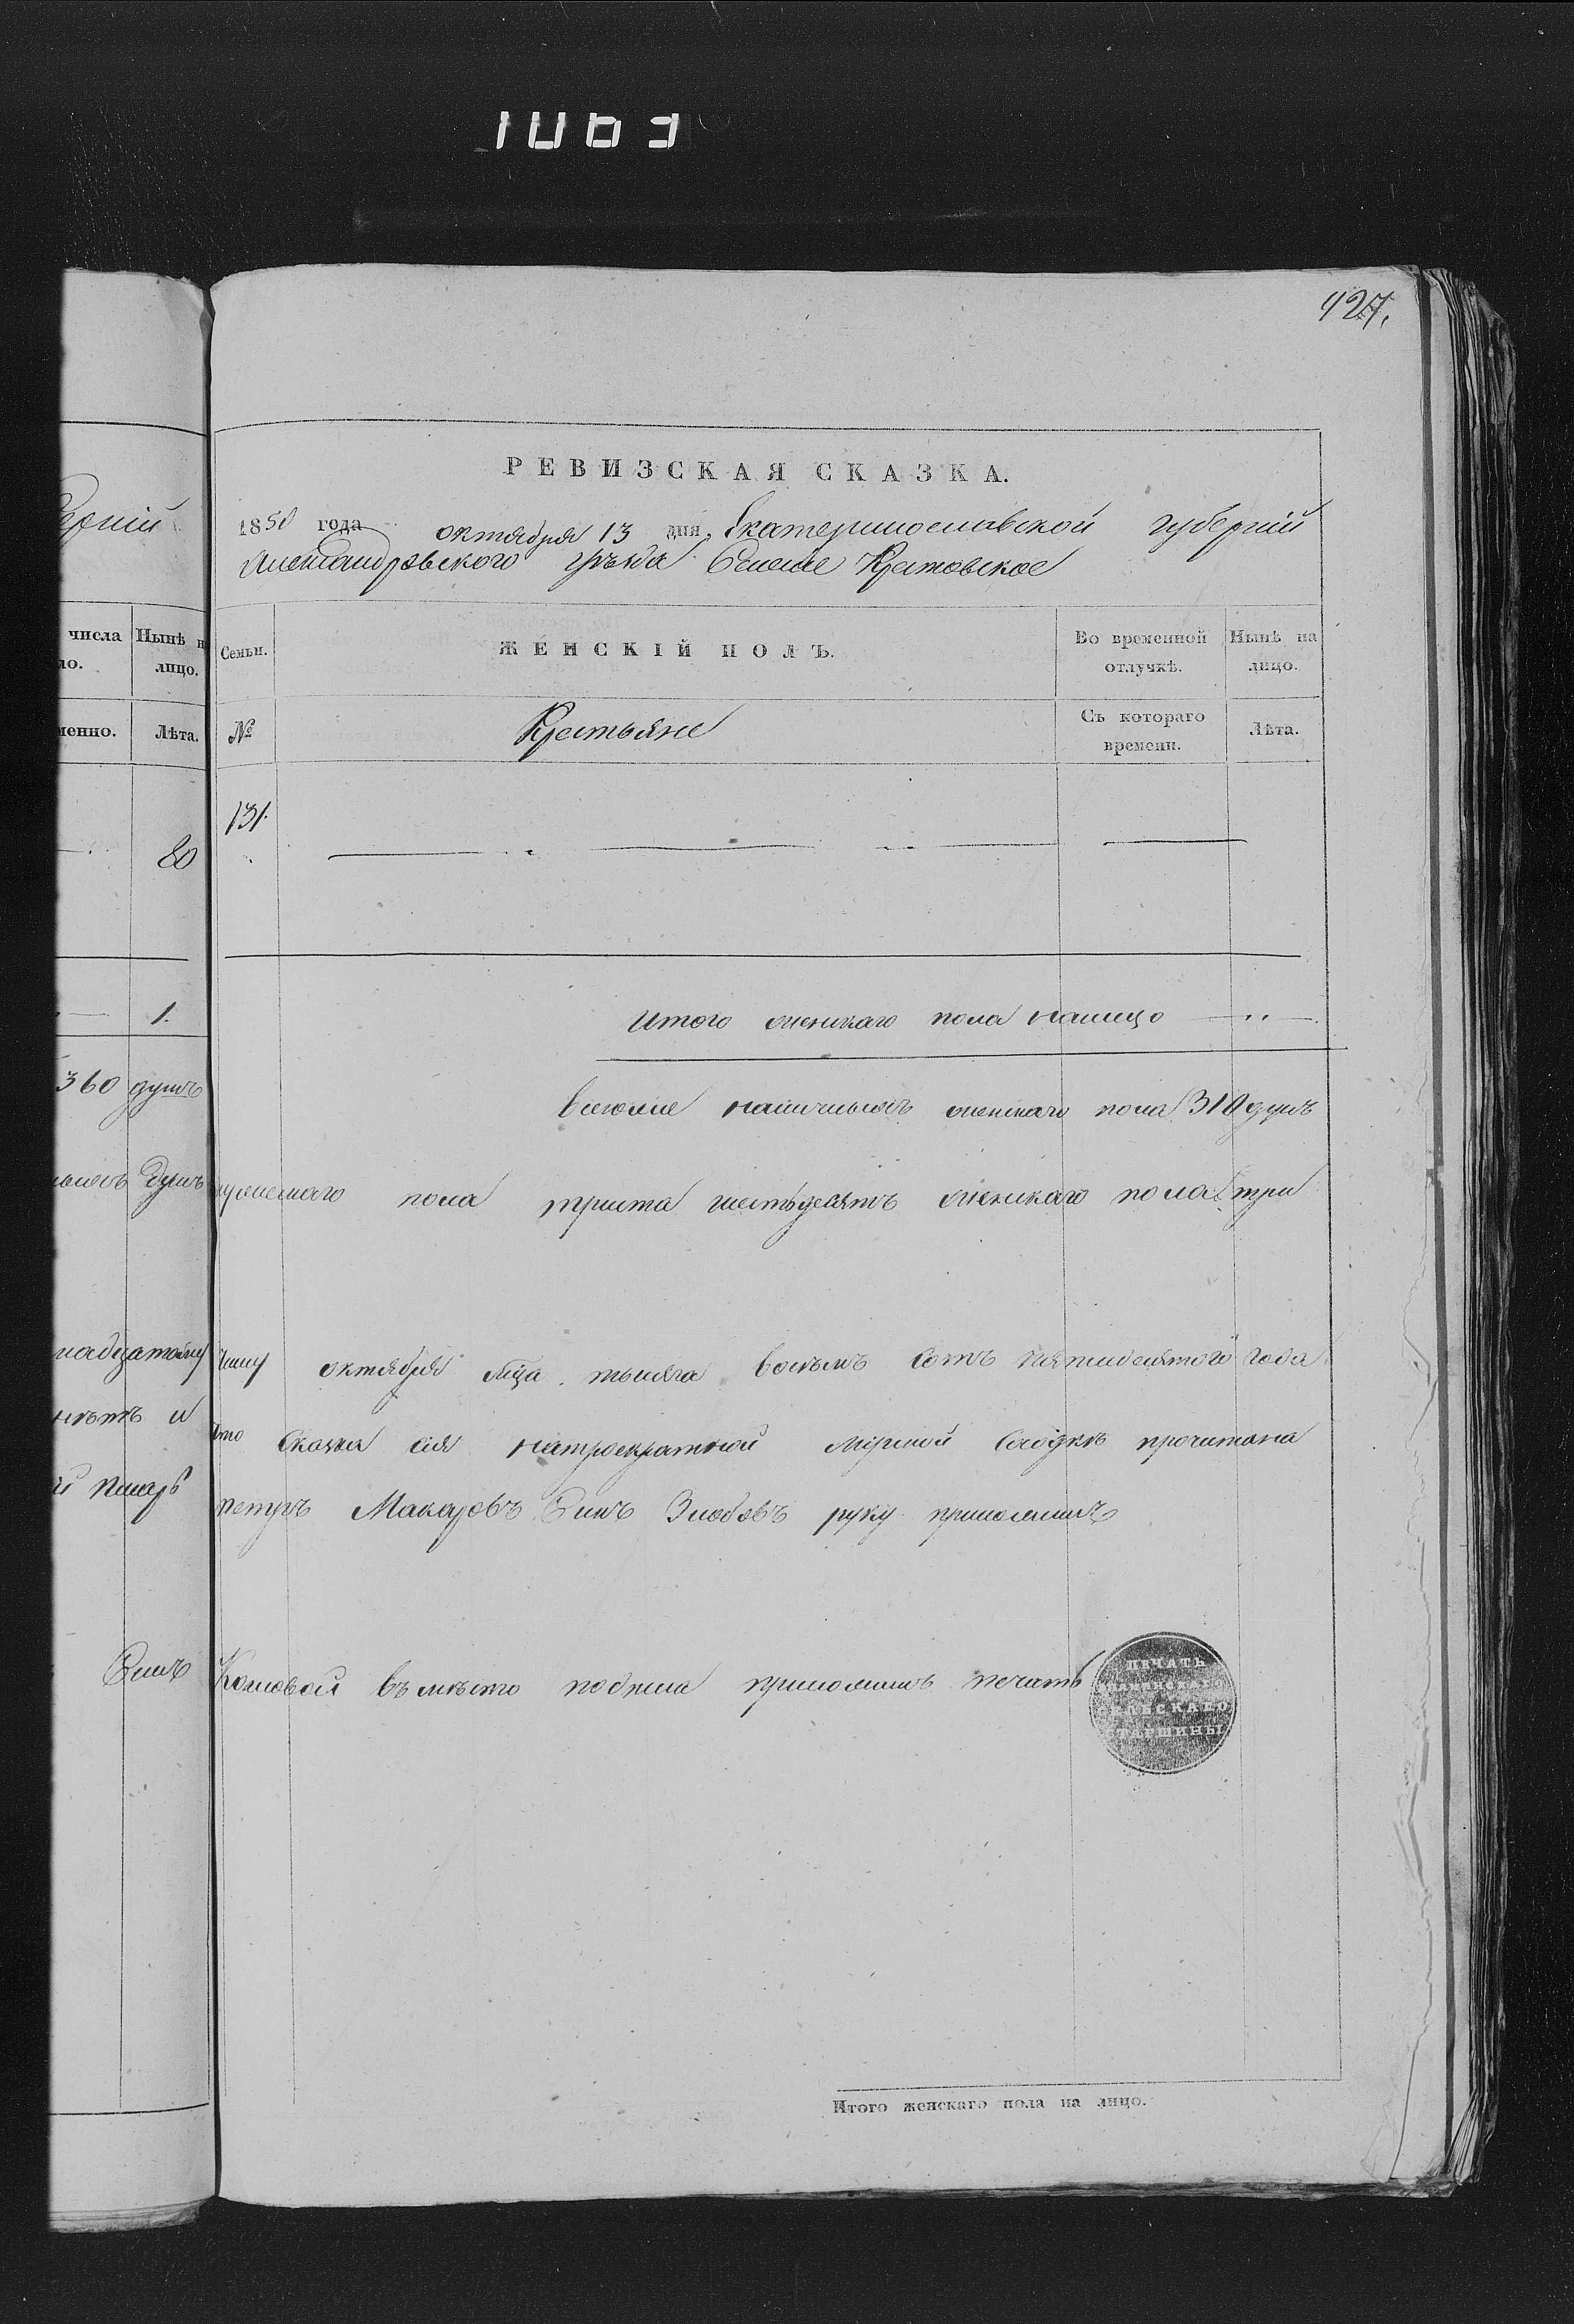 1063
427.
РЕВИЗСКАЯ СКАЗКА.
1850 года октября 13 дня, Екатеринославской губерній
Александровского уѣзда Селеніе
числа Нынѣ н
ло. лицо.
менно. Лѣта.
Семьи. ЖЕНСКІЙ ПОЛЪ. Во временной отлучкѣ. Нынѣ на лицо.
№ Крестьяне Съ котораго времени. Лѣта.
80
131.
1.
Итого женскаго пола налицо
360 душъ
Всего же наличныхъ женскаго пола 310 душъ
душъ мужескаго пола триста шестьдесятъ женскаго пола три
надцатому числу октября мѣца тысяча восемь сотъ пятидесятого года
и что сказка сія на троекратной мірской сходкѣ прочитана
й писарь петръ Макаровъ Синъ Злобовъ руку приложилъ
Синъ Кошовой въ мѣсто подписи приложилъ печать
ПЕЧАТЬ
СЕЛЬСКАГО
СТАРШИНЫ
Итого женскаго пола на лицо.